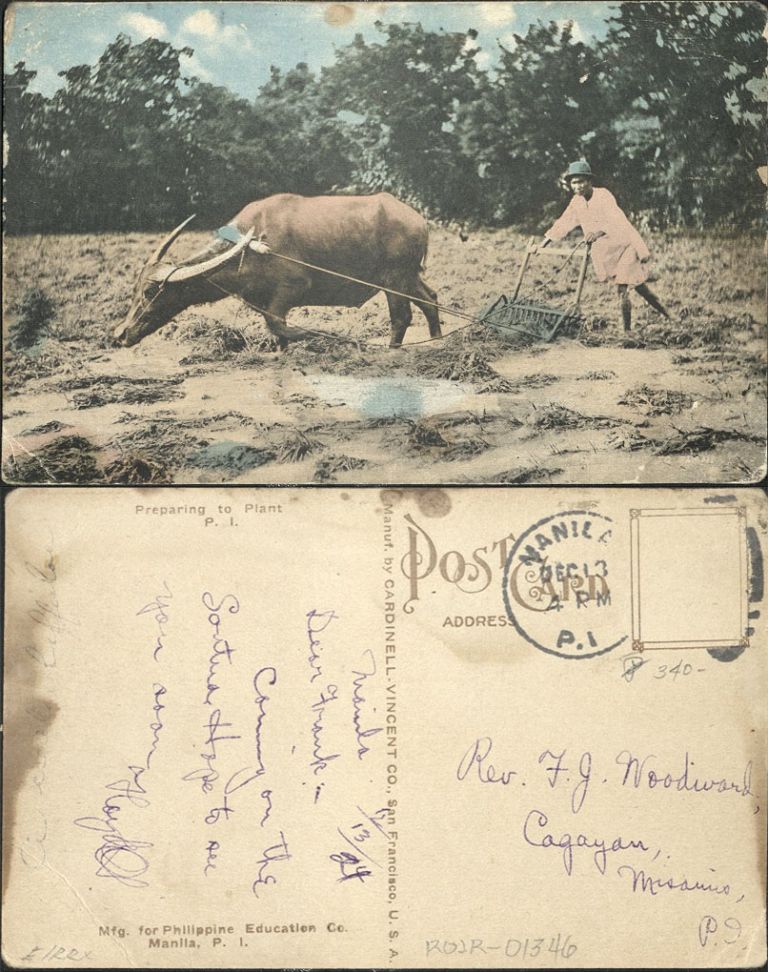 Preparing to Plant
P. I.
Manila
12/13/24
Dear Frank:-
Coming on the
Hope to see
you soon
Mfg. for Philippine Education Co.
Manila, P. I.
Manuf. by CARDINELL-VINCENT CO., San Francisco, U. S. A.
POST CARD
ADDRESS
MANILA
DEC 13
4 PM
P.I.
340-
Rev. F. J. Woodward,
Cagayan,
Misamis,
P.I.
ROJR-01346